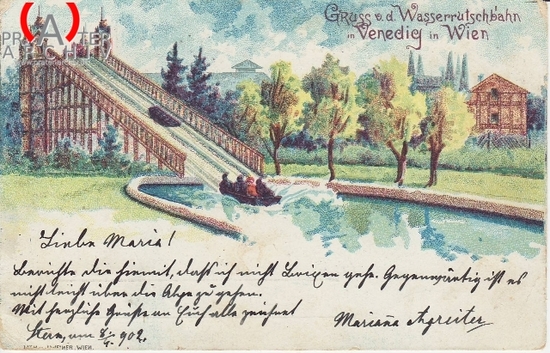 (A)
Gruss v. d. Wasserrutschbahn
in Venedig in Wien
Liebe Maria!
Berichte dir hiemit, daß ich nicht Brixen gehe. Gegenwärtig ist es
nicht leicht über die Alpe zu gehen.
Mit herzliche Grüße an Euch alle zeichnet
Stern, am 902.
Mariana Agreiter
WIEN.